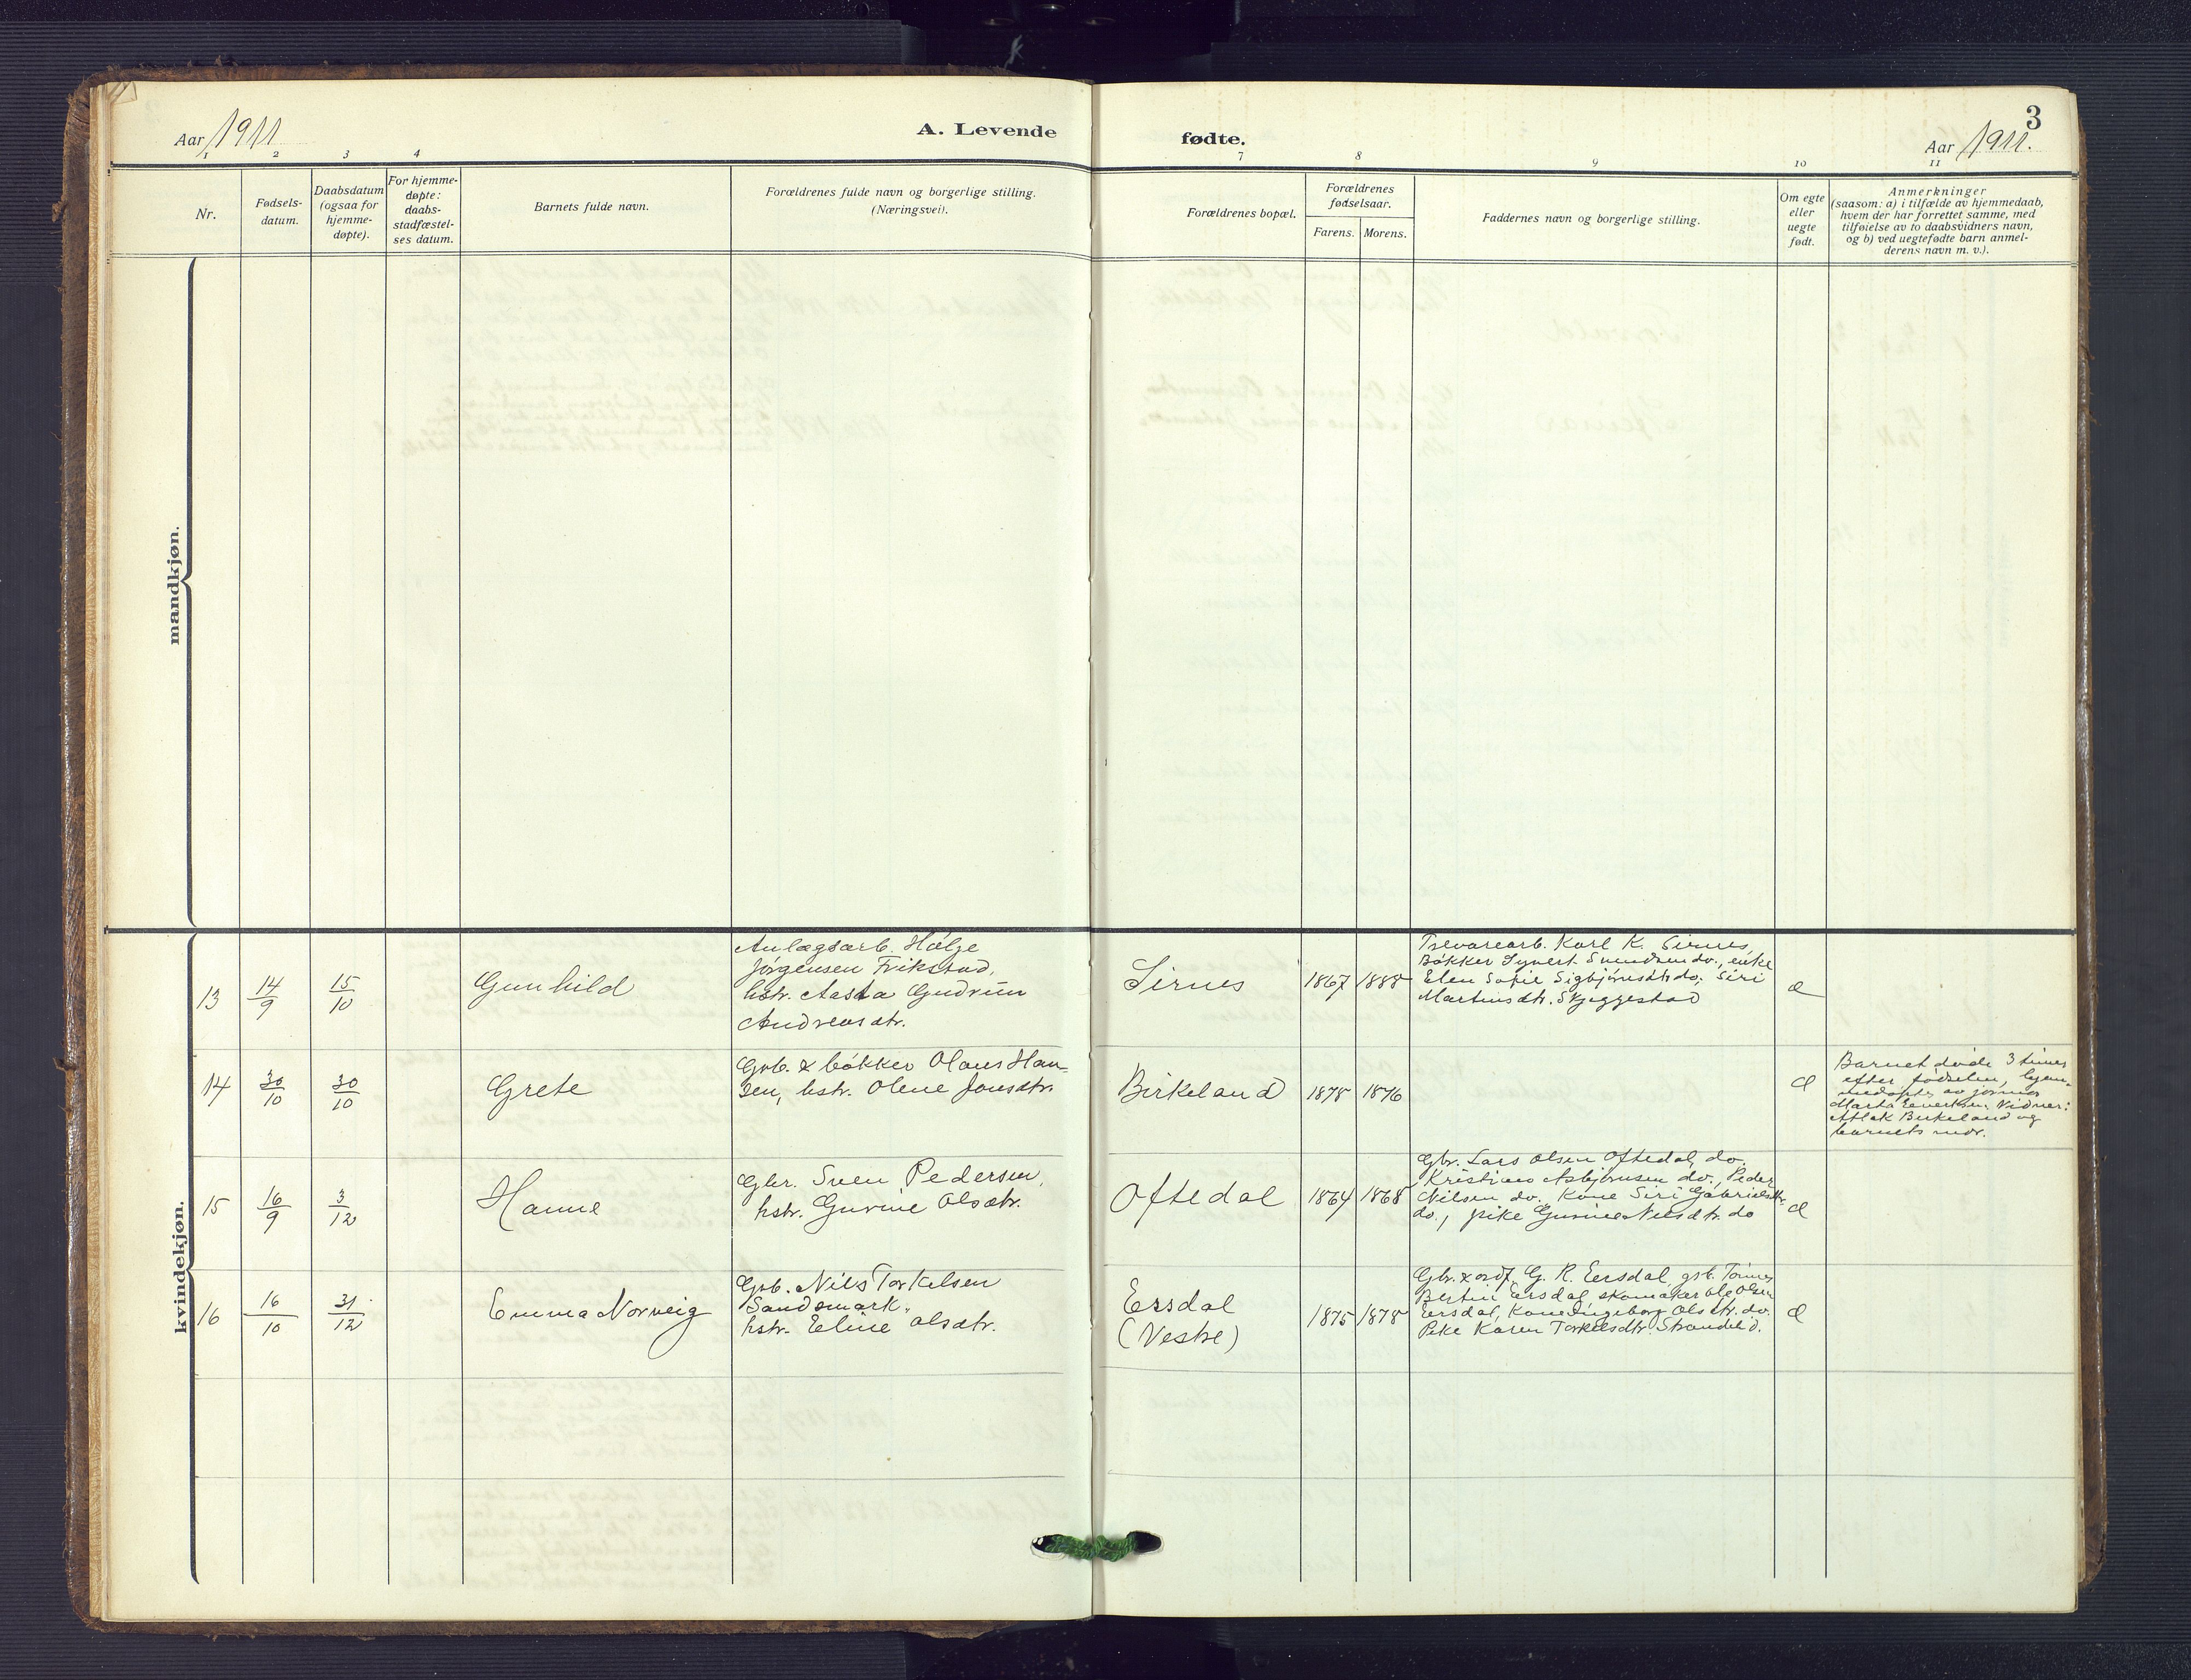 Aar 1911
A. Levende
fødte.
3
Aar 1911.
1 2 3 4 7 8 9 10 11
Nr.
Fødsels-
datum.
Daabsdatum
(ogsaa for
hjemme-
døpte).
For hjemme-
døpte:
daabs-
stadfæstel-
ses datum.
Barnets fulde navn.
Forældrenes fulde navn og borgerlige stilling.
(Næringsvei).
Forældrenes bopæl.
Forældrenes
fødselsaar.
Farens. Morens.
Faddernes navn og borgerlige stilling.
Om egte
eller
uegte
født.
Anmerkninger
(saasom: a) i tilfælde av hjemmedaab,
hvem der har forrettet samme, med
tilføielse av to daabsvidners navn,
og b) ved uegtefødte barn anmel-
derens navn m. v.).
mandkjøn.
kvindekjøn.
13 14/9 15/10 Gunhild
Anlægsarb. Helge
Jørgensen Frikstad,
hstr. Aasta Gudrun
Andreasdtr.
Sirnes 1867 1888
Trevarearb. Karl K. Sirnes,
Bøkker Syvert Svendsen do., enke
Elen Sofie Sigbjørnsdtr do; Siri
Martinsdtr. Skjeggestad
e
14 30/10 30/10 Grete
Grb. & bøkker Olaus Han-
sen, hstr. Olene Jonsdtr.
Birkeland 1878 1876
e
Barnet døde 3 timer
efter fødselen, hjem-
medøpt av jormor
Marta Evertsen. Vidner:
Atlak Birkeland og
barnets mor.
15 16/9 3/12 Hanne
Gbr. Sven Pedersen,
hstr. Gurine Olsdtr.
Oftedal 1864 1868
Gbr. Lars Olsen Oftedal, do.
Kristian Asbjørnsen do., Peder
Nilsen do. Kone Siri Gabrielsdtr.
do., pike Gurine Nilsdtr. do
e
16 16/10 31/12 Emma Norveig
Grb. Nils Torkelsen
Sandsmark,
hstr. Eline Olsdtr.
Ersdal
(Vestre)
1875 1878
Gbr. & ordf. G. R. Eersdal, gsb. Tønnes
Bertin Eersdal, skomaker Ole Olsen
Eersdal, Kone Ingeborg Olsdtr. do.
Pike Karen Torkelsdtr. Strandelid.
e